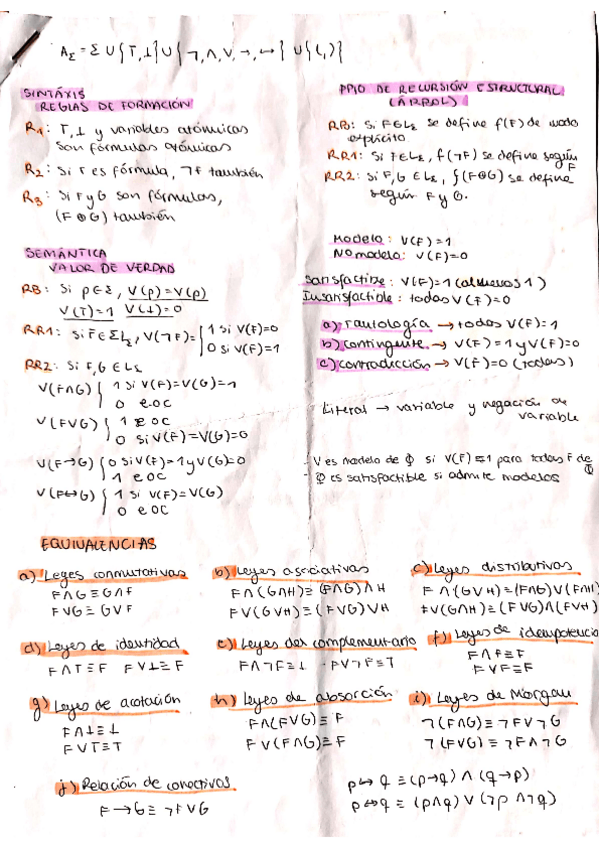 A_Σ = Σ ∪ {⊤,⊥} ∪ {¬,∧,∨,→,↔} ∪ {(,)}
SINTÁXIS
REGLAS DE FORMACIÓN
R₁: ⊤,⊥ y variables atómicas
son fórmulas atómicas
R₂: Si F es fórmula, ¬F también
R₃: Si F y G son fórmulas,
(F ⊕ G) también
SEMÁNTICA
VALOR DE VERDAD
RB: Si p ∈ Σ, V(p) = V(p)
V(⊤) = 1 V(⊥) = 0
RR1: Si F ∈ L_Σ, V(¬F) = { 1 si V(F)=0
0 si V(F)=1
RR2: Si F,G ∈ L_Σ
V(F∧G) { 1 si V(F)=V(G)=1
0 e.o.c
V(F∨G) { 1 e.o.c
0 si V(F)=V(G)=0
V(F→G) { 0 si V(F)=1 y V(G)=0
1 e.o.c
V(F↔G) { 1 si V(F)=V(G)
0 e.o.c
PPIO DE RECURSIÓN ESTRUCTURAL
(ÁRBOL)
RB: Si F ∈ L_Σ se define f(F) de modo
explícito.
RR1: Si F ∈ L_Σ, f(¬F) se define según
F
RR2: Si F,G ∈ L_Σ, f(F⊕G) se define
según F y G.
Modelo: V(F)=1
No modelo: V(F)=0
Satisfactible: V(F)=1 (al menos 1)
Insatisfactible: todos V(F)=0
a) Tautología → todos V(F)=1
b) contingente → V(F)=1 y V(F)=0
c) contradicción → V(F)=0 (todas)
Literal → variable y negación de
variable
- V es modelo de Φ si V(F)=1 para todas F de
Φ
- Φ es satisfactible si admite modelos
EQUIVALENCIAS
a) Leyes conmutativas
F∧G ≡ G∧F
F∨G ≡ G∨F
b) Leyes asociativas
F∧(G∧H) ≡ (F∧G)∧H
F∨(G∨H) ≡ (F∨G)∨H
c) Leyes distributivas
F∧(G∨H) ≡ (F∧G)∨(F∧H)
F∨(G∧H) ≡ (F∨G)∧(F∨H)
d) Leyes de identidad
F∧⊤ ≡ F F∨⊥ ≡ F
e) Leyes del complementario
F∧¬F ≡ ⊥ · F∨¬F ≡ ⊤
f) Leyes de idempotencia
F∧F ≡ F
F∨F ≡ F
g) Leyes de acotación
F∧⊥ ≡ ⊥
F∨⊤ ≡ ⊤
h) Leyes de absorción
F∧(F∨G) ≡ F
F∨(F∧G) ≡ F
i) Leyes de Morgan
¬(F∧G) ≡ ¬F∨¬G
¬(F∨G) ≡ ¬F∧¬G
j) Relación de conectivos
F→G ≡ ¬F∨G
p↔q ≡ (p→q) ∧ (q→p)
p↔q ≡ (p∧q) ∨ (¬p∧¬q)